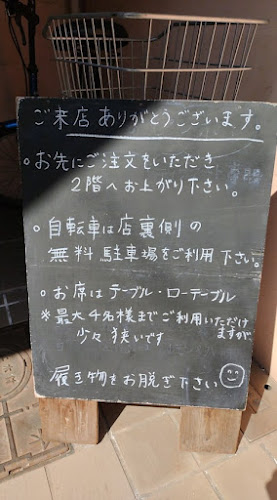 ご来店ありがとうございます。
。お先にご注文をいただき
２階へお上がり下さい。
。自転車は店裏側の
無料駐車場をご利用下さい。
。お席はテーブル・ローテーブル
※最大4名様までご利用いただけ
ますが
少々狭いです
履き物をお脱ぎ下さい